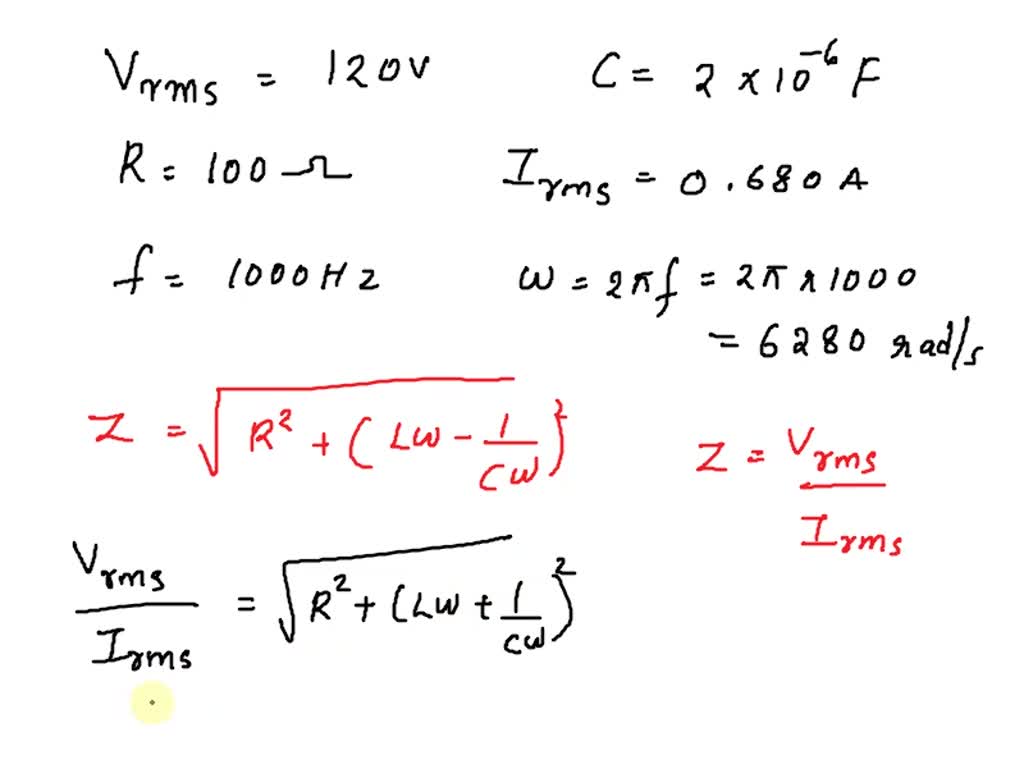 Vrms = 120V
C = 2 × 10⁻⁶ F
R = 100 Ω
Irms = 0.680 A
f = 1000 Hz
ω = 2πf = 2π × 1000
= 6280 rad/s
Z = √R² + (Lω - 1/Cω)²
Z = Vrms/Irms
Vrms/Irms = √R² + (Lω + 1/Cω)²